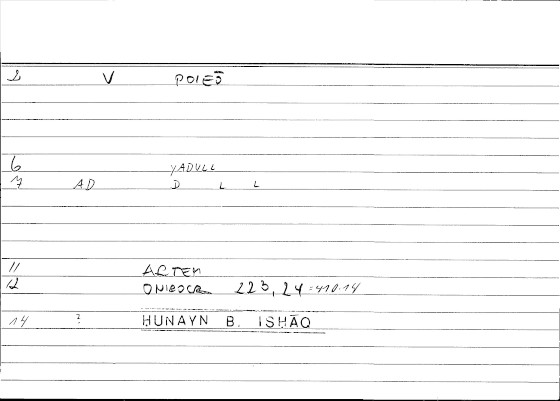 2 V POIEŌ
6 YADULL
7 AD D L L
11 ARTEM
12 ONIROCR 223, 24 = 410.14
14 ? HUNAYN B. ISHĀQ